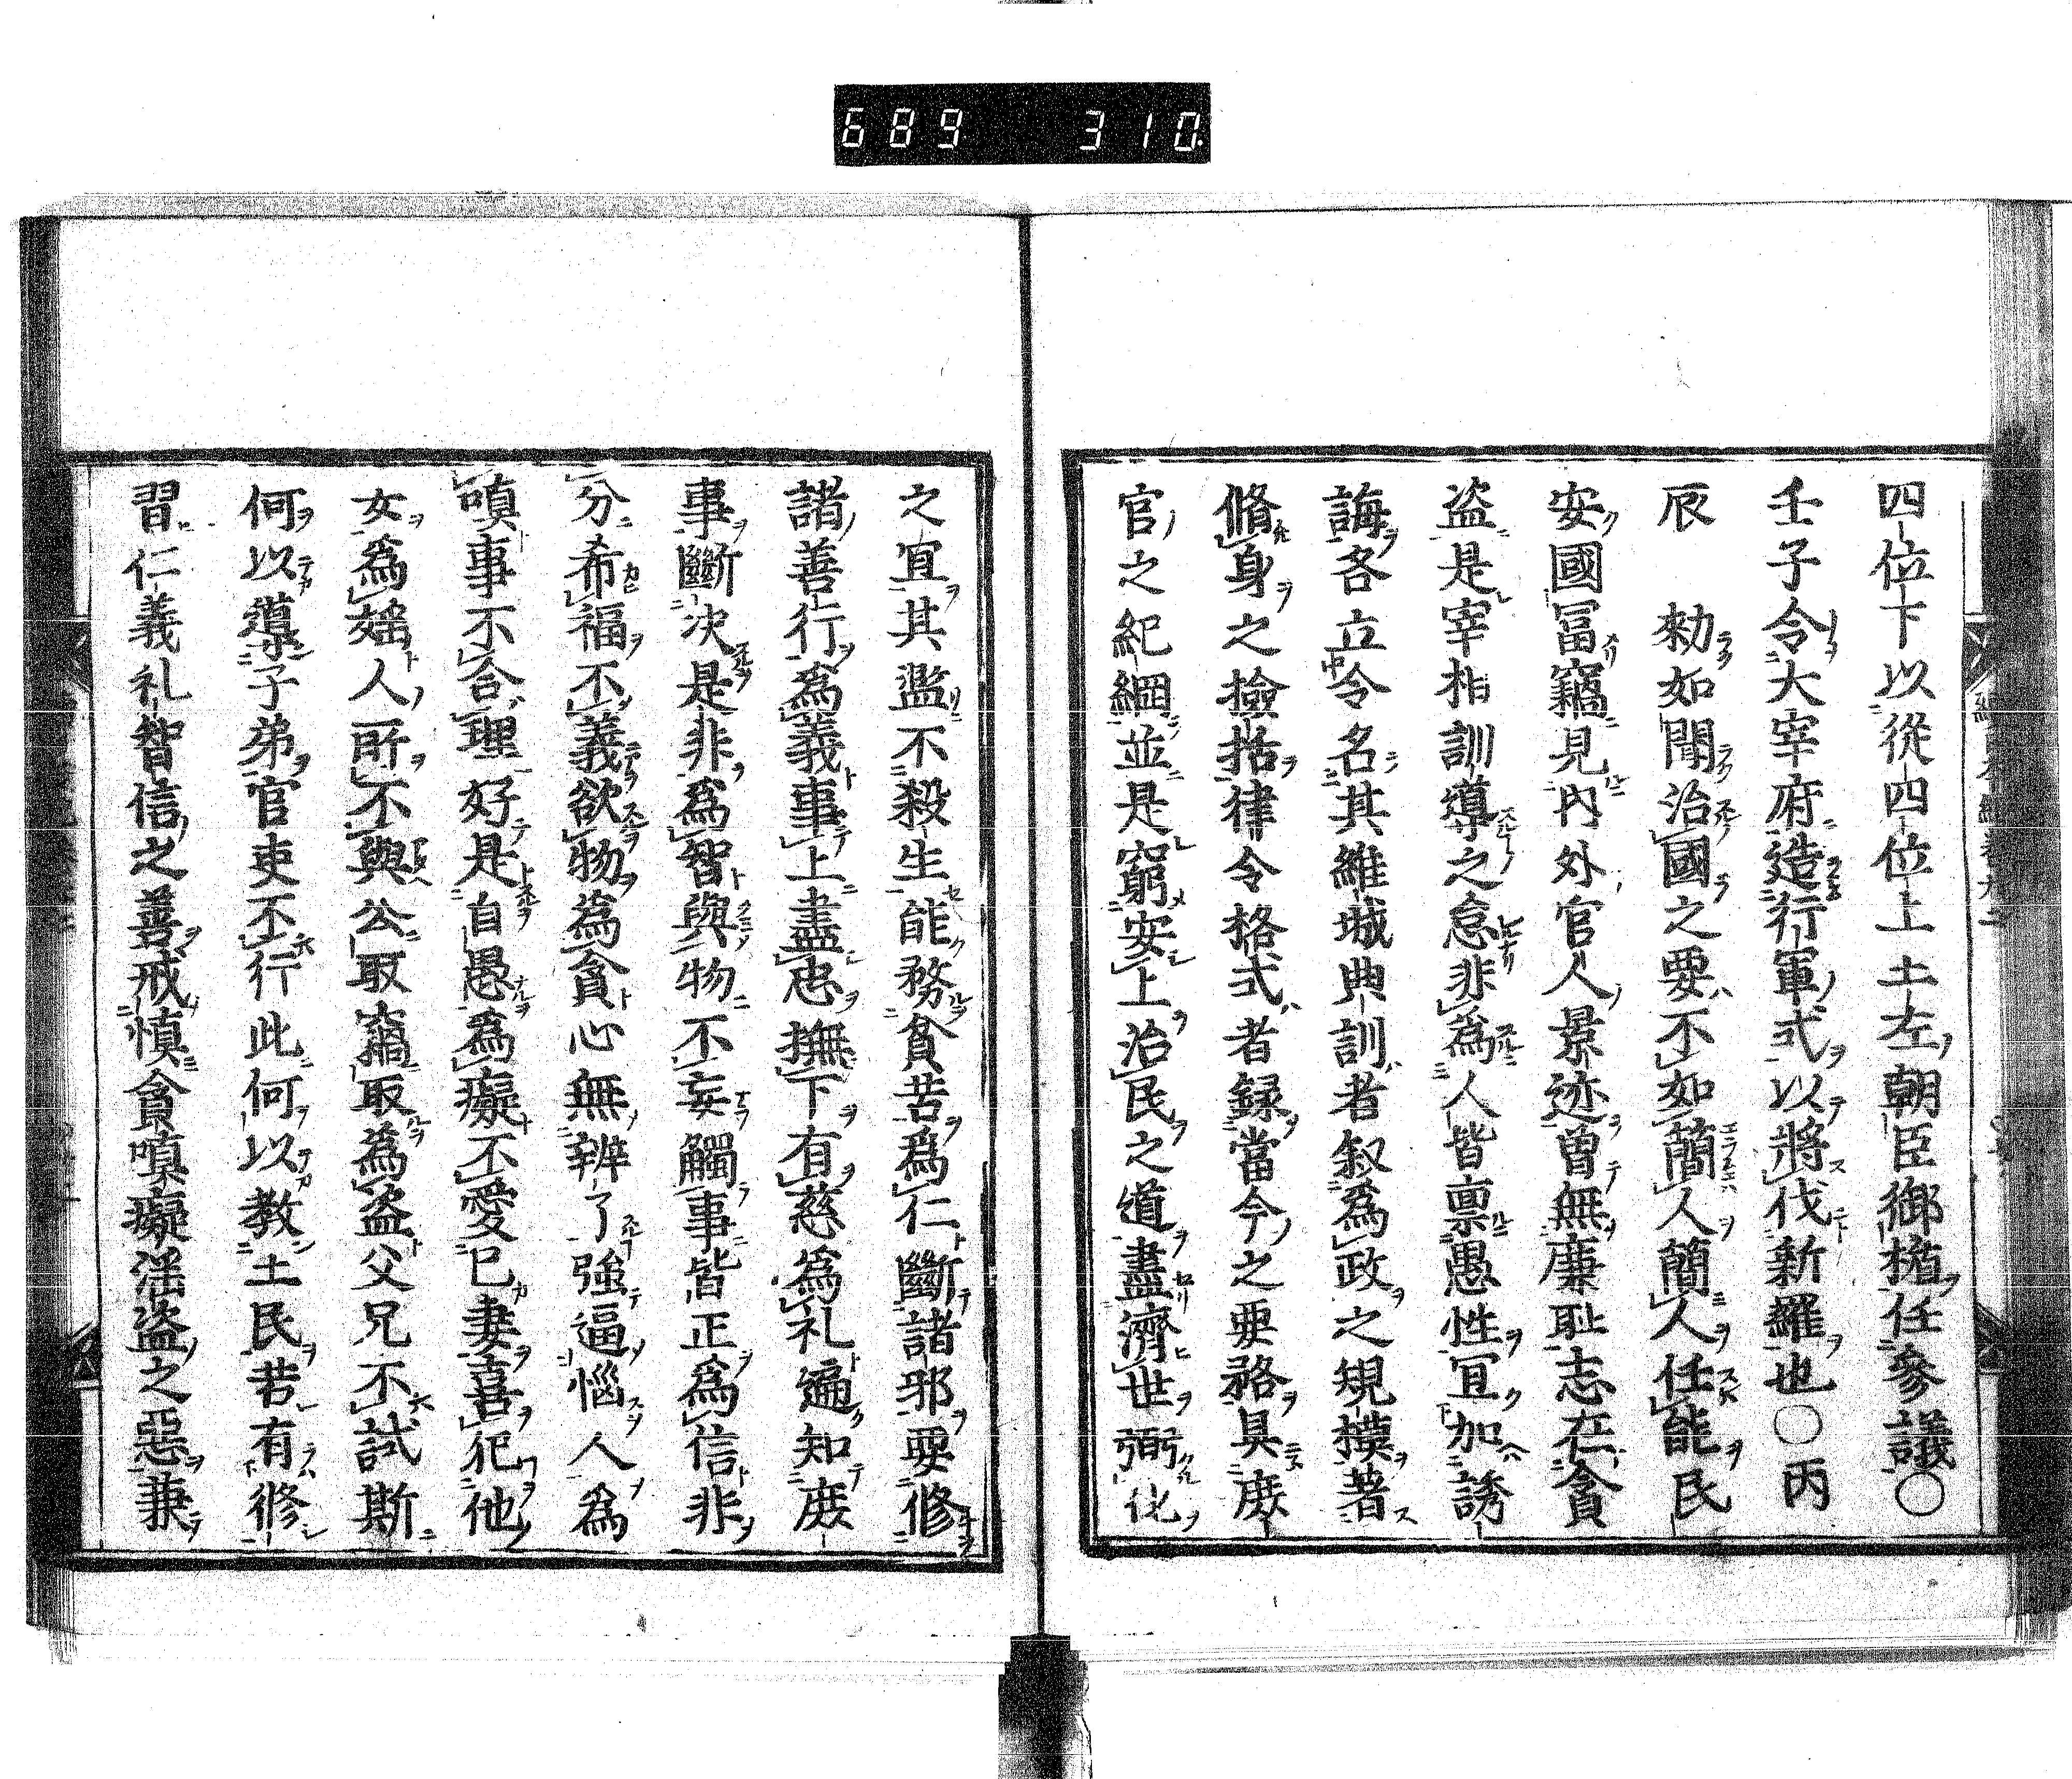 689 310
四位下以從四位上土左朝臣御楯任參議〇
壬子令大宰府造行軍式以將伐新羅也〇丙
辰 勅如聞治國之要不如簡人簡人任能民
安國冨竊見内外官人景迹曽無廉耻志在貪
盗是宰相訓導之怠非為人皆禀愚性冝加誘
誨各立令名其維城典訓者叙為政之規摸著
脩身之撿括律令格式者録當今之要務具庻
官之紀綱並是窮安上治民之道盡濟世弼化
之冝其濫不殺生能務貧苦為仁斷諸邪惡修
諸善行為義事上盡忠撫下有慈為礼遍知庻
事斷决是非為智與物不妄觸事皆正為信非
分希福不義欲物為貪心無辨了強逼惱人為
嗔事不合理好是自愚為癡不愛己妻喜犯他
女為婬人所不與公取竊取為盗父兄不試斯
何以導子弟官吏不行此何以教士民若有修
習仁義礼智信之善戒慎貪嗔癡淫盗之惡兼